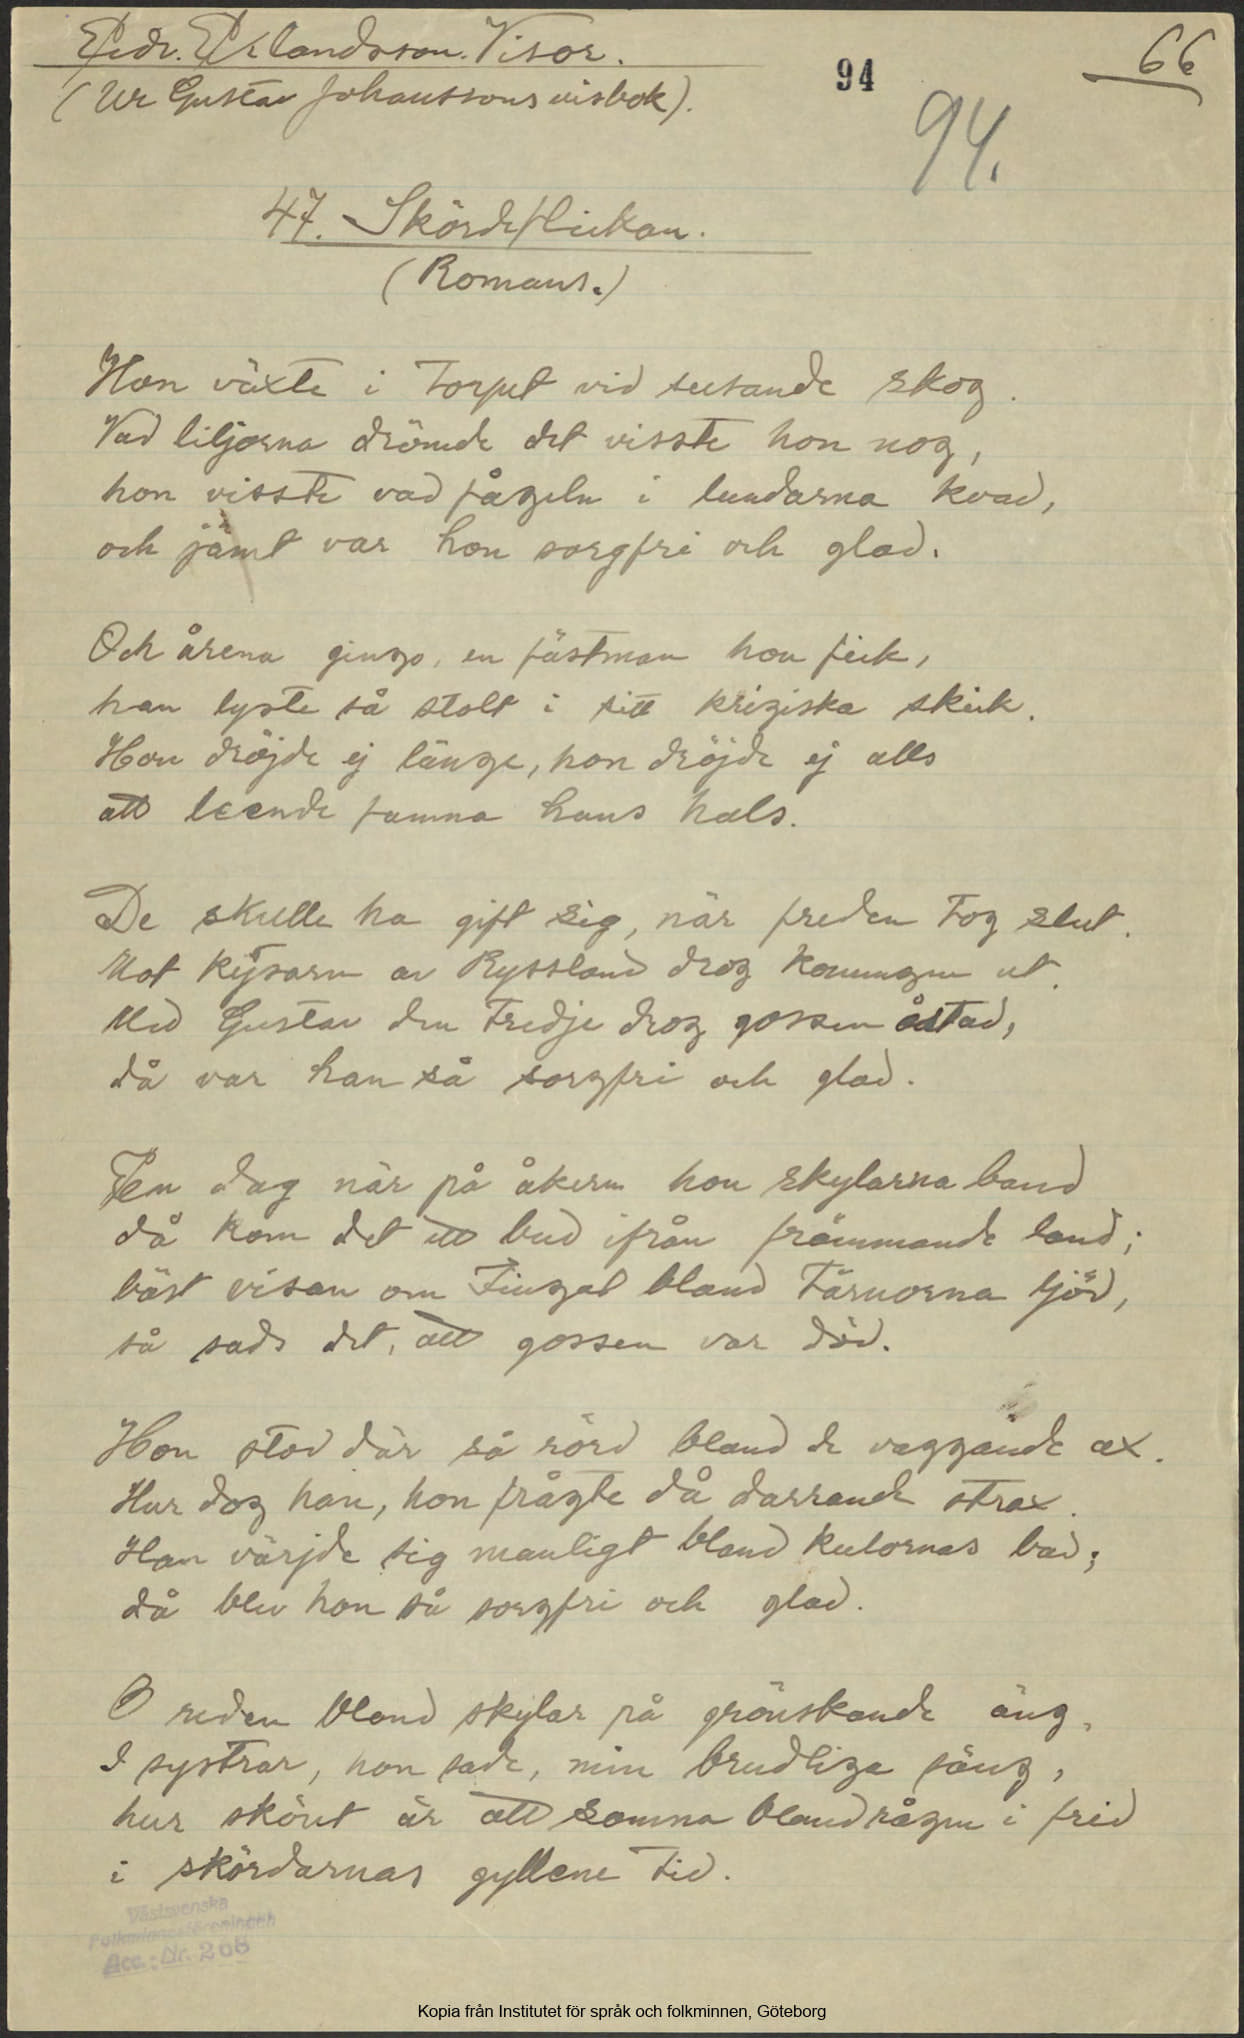 Fredr. Erlandsson. Visor.
(Ur Gustav Johanssons visbok).
94
66
94.
47. Skördeflickan.
(Romans.)
Hon växte i torpet vid susande skog.
Vad liljorna drömde det visste hon nog,
hon visste vad fågeln i lundarna kvad,
och jämt var hon sorgfri och glad.
Och årena gingo, en fästman hon fick,
han lyste så stolt i sitt krigiska skick.
Hon dröjde ej länge, hon dröjde ej alls
att leende famna hans hals.
De skulle ha gift sig, när freden tog slut.
Mot kejsarn av Ryssland drog konungen ut.
Med Gustav den tredje drog gossen åstad,
då var han så sorgfri och glad.
En dag när på åkern hon skylarna band
då kom det ett bud ifrån främmande land;
bäst visan om Fingal bland tärnorna ljöd,
så sads det, att gossen var död.
Hon stod där så rörd bland de vaggande ax.
Hur dog han, hon frågte då darrande strax.
Han värjde sig manligt bland kulornas bad;
då blev hon så sorgfri och glad.
O reden bland skylar på grönskande äng,
I systrar, hon sade, min brudliga säng,
hur skönt är att somna bland rågen i frid
i skördarnas gyllene tid.
Västsvenska
Folkminnesföreningen
Acc. Nr. 268
Kopia från Institutet för språk och folkminnen, Göteborg